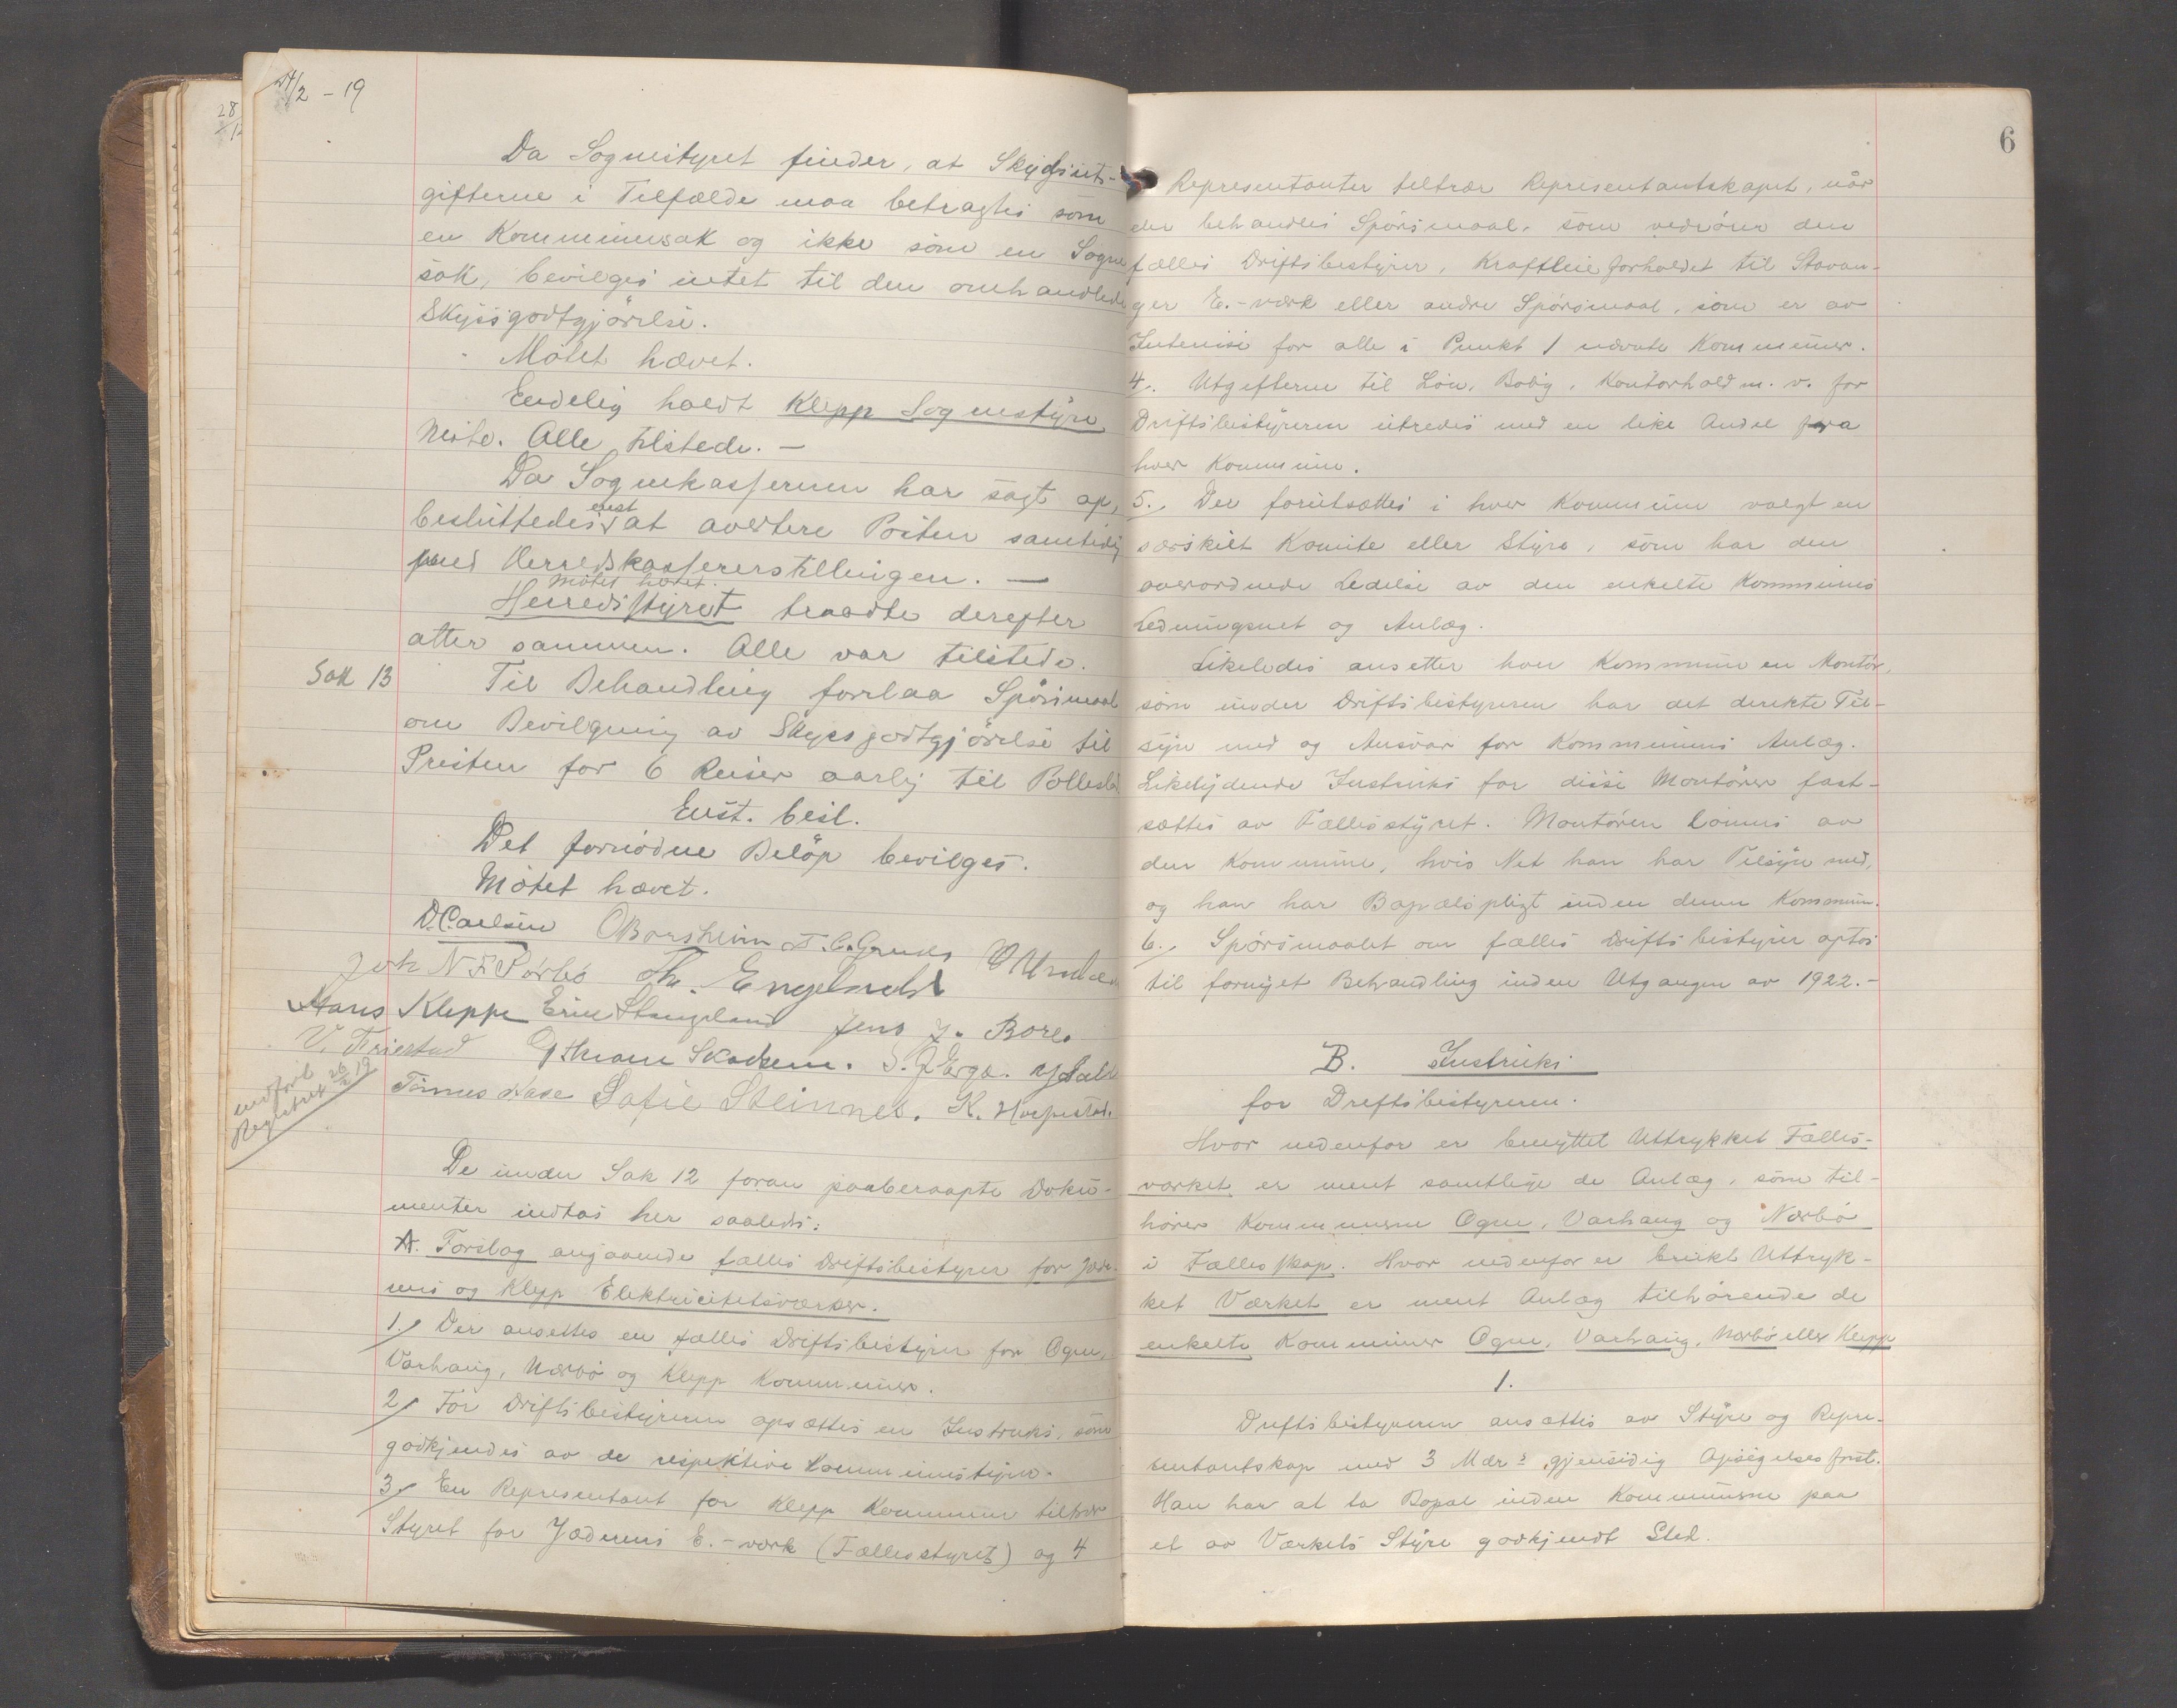 24/2 - 19
28/12
Da Sognestyret finder, at Skydsuts-
gifterne i Tilfælde maa betragtes som
en Kommunesak og ikke som en Sogne
sak, bevilges intet til den omhandlede
Skyssgodtgjörelse.
Mötet hævet.
Endelig holdt Klepp Sognestyre
Möte. Alle tilstede. —
Da Sognekasseren har sagt op,
besluttedes enst at avertere Posten samtidig
med Herredskassererstillingen. —
Mötet hævet.
Herredsstyret traadte derefter
atter sammen. Alle var tilstede.
Sak 13
Til Behandling forelaa Spörsmaal
om Bevilgning av Skyssgodtgjörelse til
Presten for 6 Reiser aarlig til Pollesta
Enst. besl.
Det fornödne Belöp bevilges.
Mötet hævet.
D. Carlsen O Borsheim
Joh N F Pörbö Th. Engelsvold
Hans Kleppe Erik Stangeland Jens J. Bore
V. Friestad Skadsem.
Tönnes Sofie Steinnes. K.
indfört
Registret 26/2 19
De under Sak 12 foran paaberaapte Doku-
menter indtas her saaledes:
A. Forslag angaaende fælles Driftsbestyrer for Jæde-
rens og Klepp Elektricitetsværker.
1. Der ansettes en fælles Driftsbestyrer for Ogne,
Varhaug, Nærbö og Klepp Kommuner.
2. For Driftsbestyreren opsættes en Instruks, som
godkjendes av de respektive Kommunestyre.
3. En Representant for Klepp Kommune tiltrær
Styret for Jæderens E.-værk (Fællesstyret) og 4
6
Representanter tiltrær Representantskapet, når
der behandles Spörsmaal, som vedrörer den
fælles Driftsbestyrer, Kraftleieforholdet til Stavan-
ger E.-værk eller andre Spörsmaal, som er av
Interesse for alle i Punkt 1 nævnte Kommuner.
4. Utgifterne til Lön, Bolig, Kontorhold m. v. for
Driftsbestyreren utredes med en like Andel fra
hver Kommune.
5. Der forutsættes i hver Kommune valgt en
særskilt Komite eller Styre, som har den
overordnede Ledelse av den enkelte Kommunes
Ledningsnet og Anlæg.
Likeledes ansetter hver Kommune en Montör,
som under Driftsbestyreren har det direkte Til-
syn med og Ansvar for Kommunens Anlæg.
Likelydende Instruks for disse Montörer fast-
sættes av Fællesstyret. Montören lönnes av
den Kommune, hvis Net han har Tilsyn med,
og han har Bopælspligt inden denne Kommune.
6. Spörsmaalet om fælles Driftsbestyrer optas
til fornyet Behandling inden Utgangen av 1922. -
B. Instruks
for Driftsbestyreren.
Hvor nedenfor er benyttet Uttrykket Fælles-
værket er ment samtlige de Anlæg, som til-
hörer Kommunerne Ogne, Varhaug og Nærbö
i Fællesskap. Hvor nedenfor er brukt Uttryk-
ket Værket er ment Anlæg tilhörende de
enkelte Kommuner Ogne, Varhaug, Nærbö eller Klepp
1.
Driftsbestyreren ansættes av Styre og Repre-
sentantskap med 3 Mdrs gjensidig Opsigelsesfrist.
Han har at ta Bopæl inden Kommunerne paa
et av Værkets Styre godkjendt Sted.